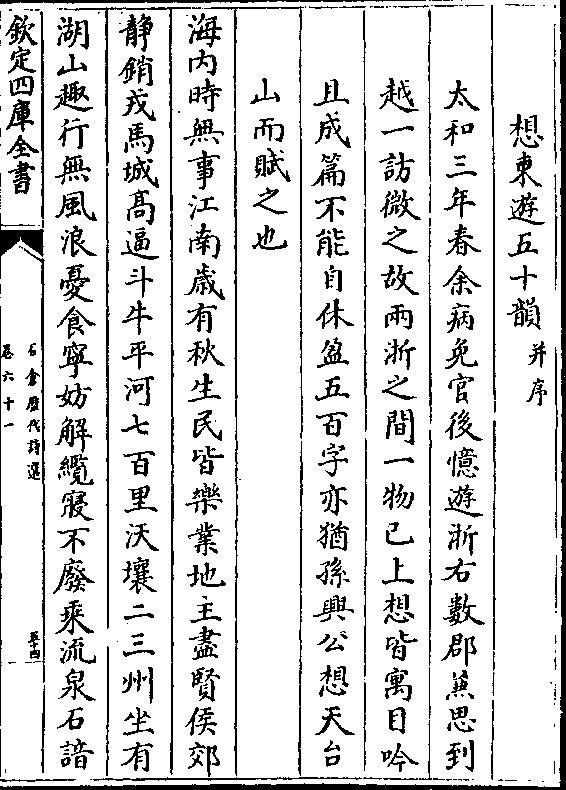 想東遊五十韻并序
太和三年春余病免官後憶遊浙右數郡蒹思到
越一訪微之故兩浙之間一物已上想皆寓目吟
且成篇不能自休盈五百字亦猶孫興公想天台
山而賦之也
海内時無事江南歳有秋生民皆樂業地主盡賢侯郊
静銷戎馬城髙逼斗牛平河七百里沃壤二三州坐有
湖山趣行無風浪憂食寧妨解纜寢不廢乘流泉石諳
欽定四庫全書
石倉歴代詩選
卷六十一
五十四